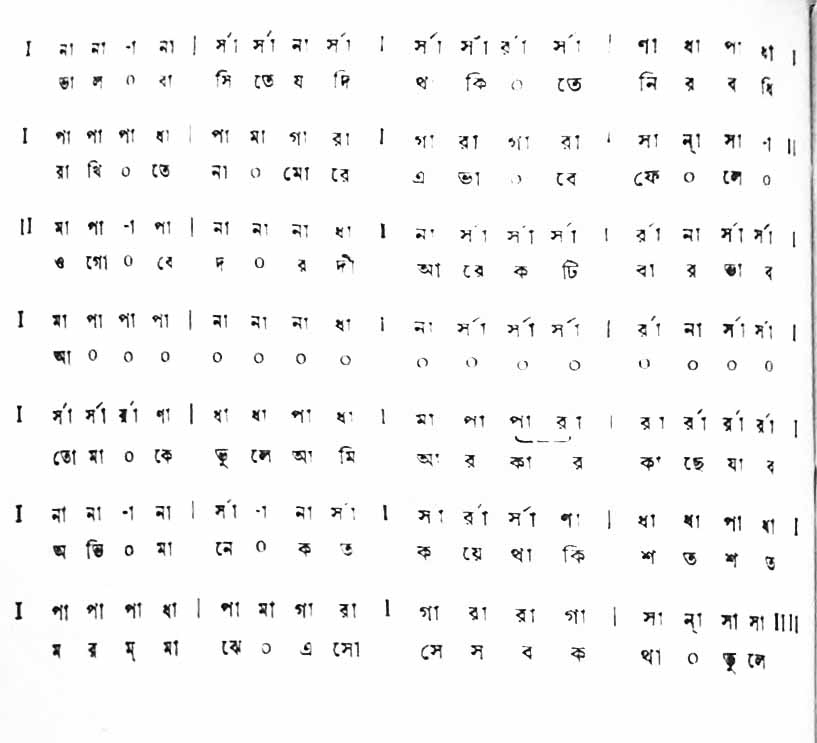 I না না -া না | র্সা র্সা না র্সা I র্সা র্সা র্রা র্সা | ণা ধা পা ধা I
ভা ল ০ বা সি তে য দি থ কি ০ তে নি র ব ধি
I পা পা পা ধা | পা মা গা রা I গা রা গা রা | সা ন্‌া সা -া II
রা খি ০ তে না ০ মো রে এ ভা ০ বে ফে ০ লে ০
II মা পা -া পা | না না না ধা I না র্সা র্সা র্সা | র্রা না র্সা র্সা I
ও গো ০ বে দ ০ র দী আ রে ক টি বা র ভা ব
I মা পা পা পা | না না না ধা I না র্সা র্সা র্সা | র্রা না র্সা র্সা I
আ ০ ০ ০ ০ ০ ০ ০ ০ ০ ০ ০ ০ ০ ০ ০
I র্সা র্সা র্রা ণা | ধা ধা পা ধা I মা পা পা রা | রা র্রা র্রা র্রা I
তো মা ০ কে ভু লে আ মি আ র কা র কা ছে যা ব
I না না -া না | র্সা -া না র্সা I সা র্রা র্সা ণা | ধা ধা পা ধা I
অ ভি ০ মা নে ০ ক ত ক য়ে থা কি শ ত শ ত
I পা পা পা ধা | পা মা গা রা I গা রা রা গা | সা ন্‌া সা সা IIII
ম র ম্ মা ঝে ০ এ সো সে স ব ক থা ০ ভু লে